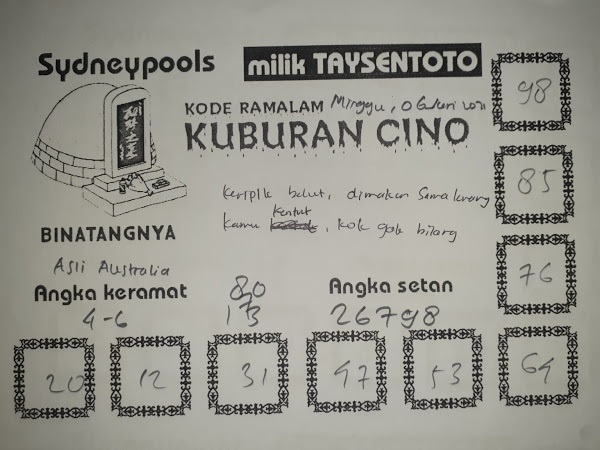 Sydneypools
milik TAYSENTOTO
98
KODE RAMALAM Minggu,
KUBURAN CINO
85
keripik belut, dimakan sama kerang
kamu kentut, kok gak bilang
BINATANGNYA
Asli Australia
76
Angka keramat
4-6
80
173
Angka setan
26798
20 12 31 47 53 64